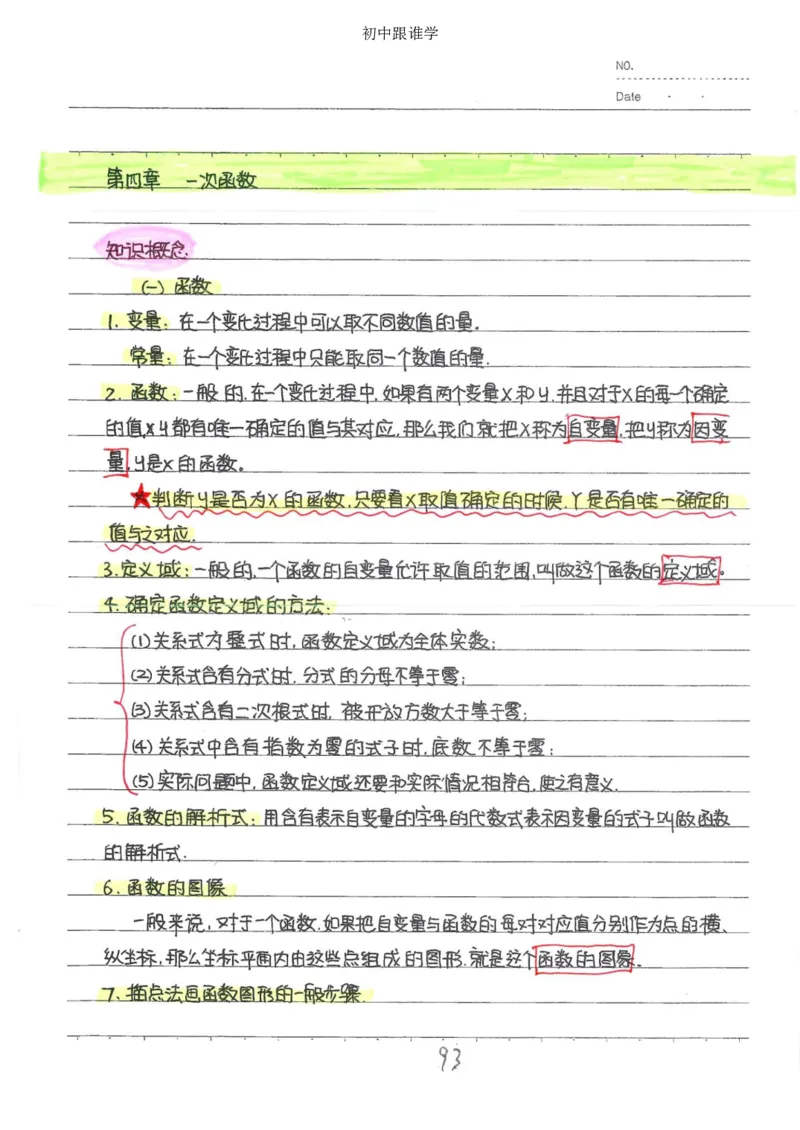 初中跟谁学
NO.
Date
第四章 一次函数
知识概念.
(一) 函数
1. 变量：在一个变化过程中可以取不同数值的量.
常量：在一个变化过程中只能取同一个数值的量.
2. 函数：一般的.在一个变化过程中,如果有两个变量X和y,并且对于X的每一个确定
的值,x y都有唯一确定的值与其对应,那么我们就把X称为自变量,把y称为因变
量,y是x的函数。
★判断y是否为X的函数,只要看X取值确定的时候,Y是否有唯一确定的
值与之对应.
3.定义域：一般的,一个函数的自变量允许取值的范围,叫做这个函数的定义域。
4.确定函数定义域的方法：
(1)关系式为整式时,函数定义域为全体实数;
(2)关系式含有分式时,分式的分母不等于零;
(3)关系式含有二次根式时,被开放方数大于等于零;
(4)关系式中含有指数为零的式子时,底数不等于零;
(5)实际问题中,函数定义域还要和实际情况相符合,使之有意义.
5.函数的解析式：用含有表示自变量的字母的代数式表示因变量的式子叫做函数
的解析式.
6.函数的图像
一般来说,对于一个函数.如果把自变量与函数的每对对应值分别作为点的横、
纵坐标,那么坐标平面内由这些点组成的图形.就是这个函数的图象.
7.描点法画函数图形的一般步骤.
93